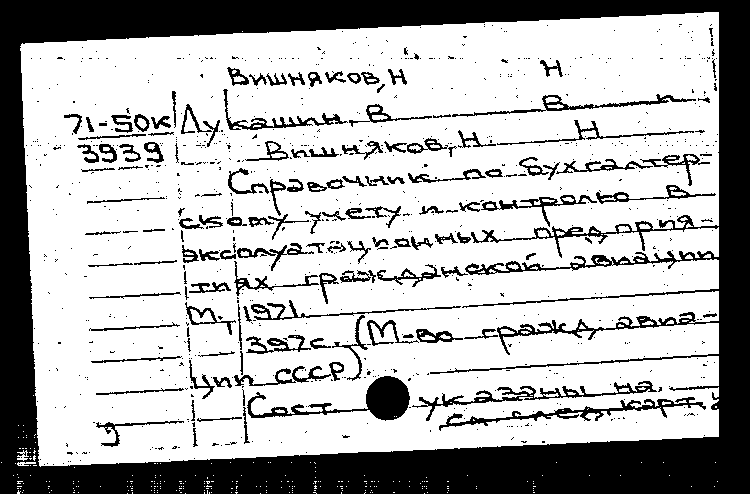 Вишняков, Н Н
71-50к Лукашин, В В п
3939 Вишняков, Н. Н
Справочник по бухгалтер-
скому учету и контролю в
эксплуатационных предприя-
тиях гражданской авиации
М., 1971.
397с. (М-во гражд. авиа-
ции СССР).
Сост. указаны на
см. след. карт.
g